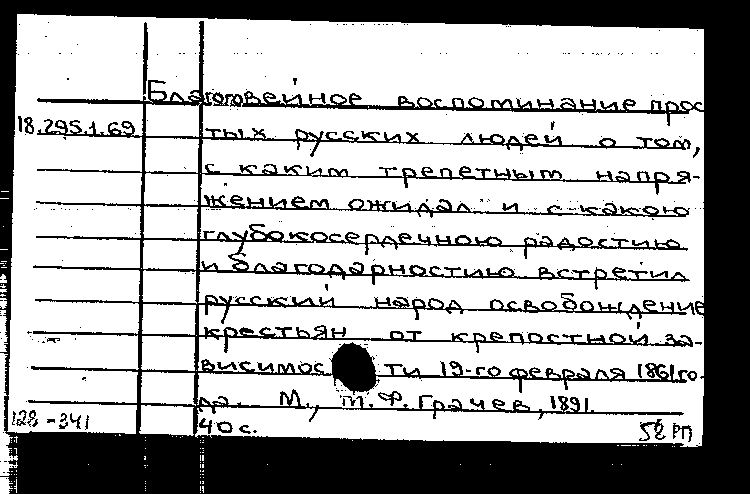 Благоговейное воспоминание прос
18.295.1.69 тых русских людей о том,
с каким трепетным напря-
жением ожидал и с какою
глубокосердечною радостию
и благодарностию встретил
русский народ освобождение
крестьян от крепостной за-
висимос ти 19-го февраля 1861 го-
да. М., т. Ф. Грачев, 1891.
128-341 40 с. 58 РП